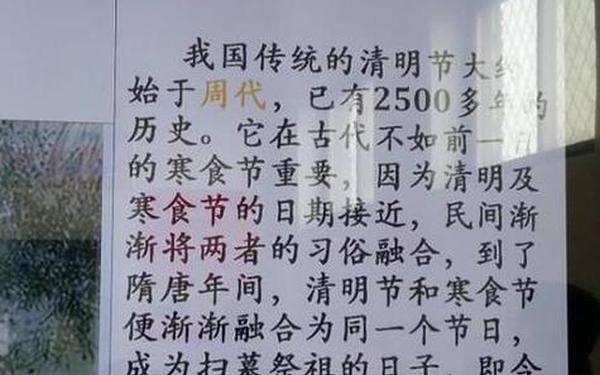 我国传统的清明节大约
始于周代，已有2500多年的
历史。它在古代不如前一日
的寒食节重要，因为清明及
寒食节的日期接近，民间渐
渐将两者的习俗融合，到了
隋唐年间，清明节和寒食节
便渐渐融合为同一个节日，
成为扫墓祭祖的日子，即今